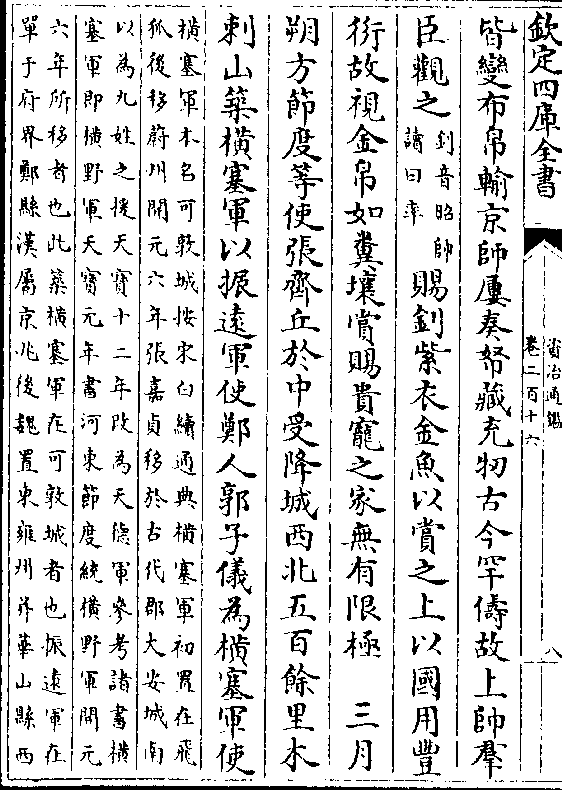 欽定四庫全書
資治通鑑
卷二百十六
八
皆變布帛輸京師屢奏帑藏充牣古今罕儔故上帥羣
臣觀之
釗音昭帥
讀曰率
賜釗紫衣金魚以賞之上以國用豐
衍故視金帛如糞壤賞賜貴寵之家無有限極　三月
朔方節度等使張齊丘於中受降城西北五百餘里木
剌山築橫塞軍以振遠軍使鄭人郭子儀為橫塞軍使
橫塞軍本名可敦城按宋白續通典橫塞軍初置在飛
狐後移蔚州開元六年張嘉貞移於古代郡大安城南
以為九姓之援天寶十二年改為天德軍參考諸書橫
塞軍即橫野軍天寶元年書河東節度統橫野軍開元
六年所移者也此築橫塞軍在可敦城者也振遠軍在
單于府界鄭縣漢屬京兆後魏置東雍州并華山縣西